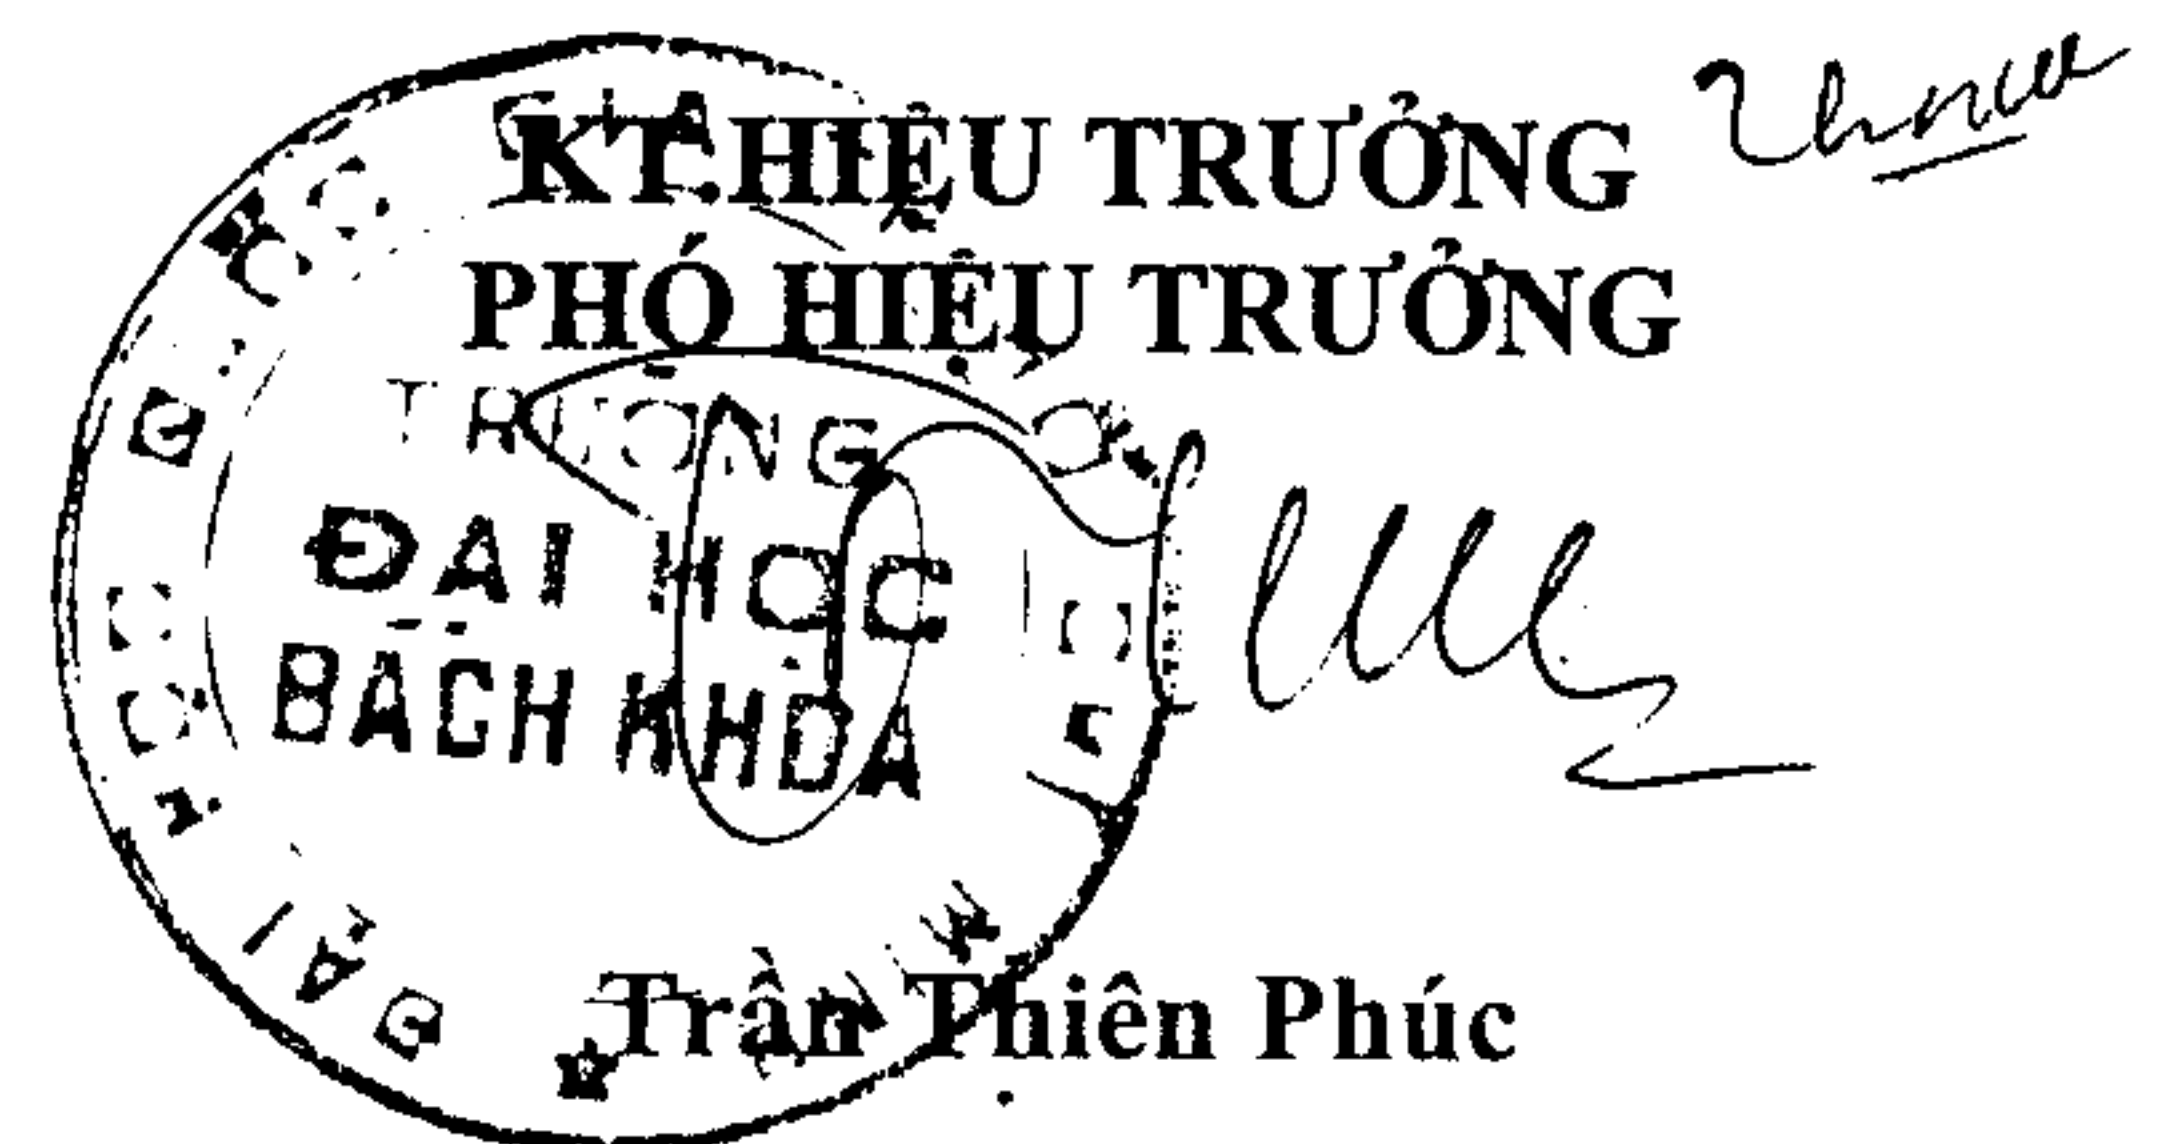 KT.HIỆU TRƯỞNG
PHÓ HIỆU TRƯỞNG
TRƯỜNG
ĐẠI HỌC
BÁCH KHOA
Trần Thiên Phúc